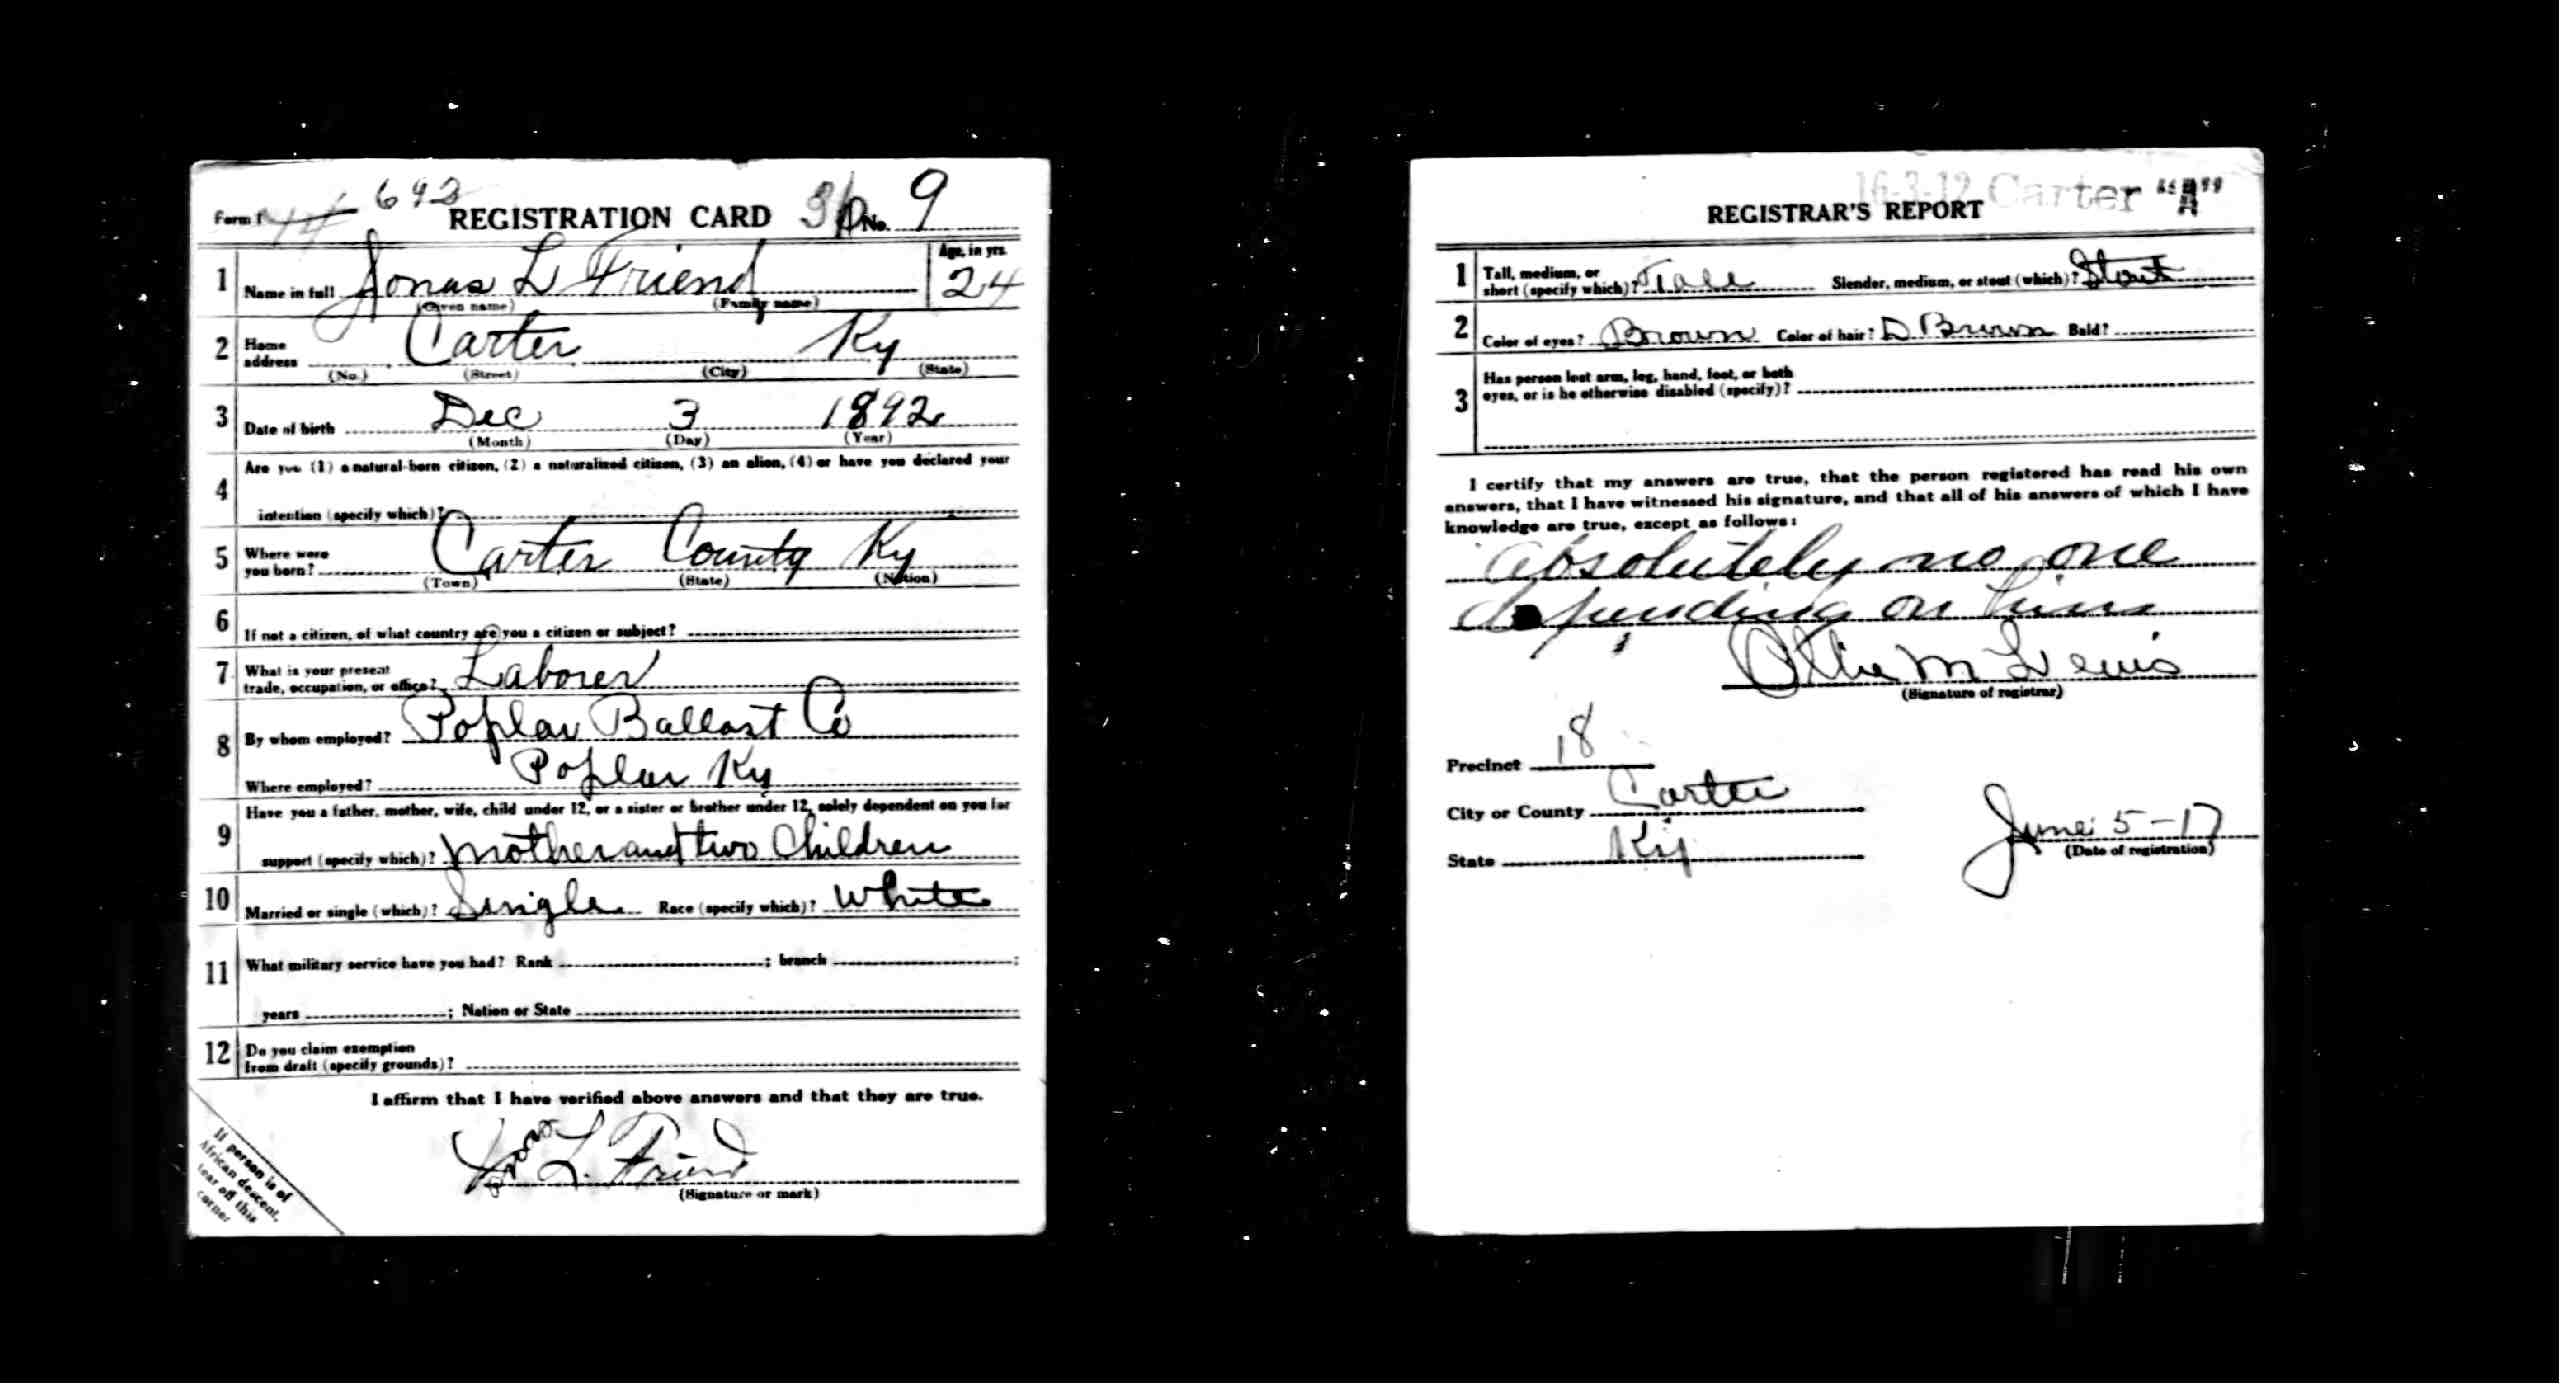 Form 1 693 REGISTRATION CARD No. 9
1 Name in full Jonas L Friend Age, in yrs. 24
(Given name) (Family name)
2 Home address Carter Ky
(No.) (Street) (City) (State)
3 Date of birth Dec 3 1892
(Month) (Day) (Year)
4 Are you (1) a natural-born citizen, (2) a naturalized citizen, (3) an alien, (4) or have you declared your
intention (specify which)?
5 Where were you born? Carter County Ky
(Town) (State) (Nation)
6 If not a citizen, of what country are you a citizen or subject?
7 What is your present trade, occupation, or office? Laborer
8 By whom employed? Poplar Ballast Co
Where employed? Poplar Ky
9 Have you a father, mother, wife, child under 12, or a sister or brother under 12, solely dependent on you for
support (specify which)? Mother and two Children
10 Married or single (which)? Single Race (specify which)? White
11 What military service have you had? Rank ; branch ;
years ; Nation or State
12 Do you claim exemption
from draft (specify grounds)?
I affirm that I have verified above answers and that they are true.
Jonas L. Friend
(Signature or mark)
If person is of
African descent,
tear off this
corner
16-3-12 Carter "A"
REGISTRAR'S REPORT
1 Tall, medium, or short (specify which)? Tall Slender, medium, or stout (which)? Stout
2 Color of eyes? Brown Color of hair? D Brown Bald?
3 Has person lost arm, leg, hand, foot, or both
eyes, or is he otherwise disabled (specify)?
I certify that my answers are true, that the person registered has read his own
answers, that I have witnessed his signature, and that all of his answers of which I have
knowledge are true, except as follows:
absolutely no one
depending on him
Ollie M Lewis
(Signature of registrar)
Precinct 18
City or County Carter
State Ky
June 5-17
(Date of registration)